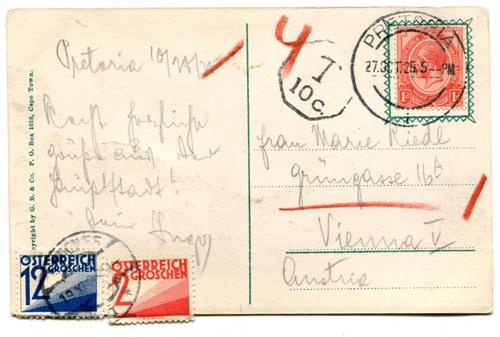 Pretoria
Recht herzliche
Grüße aus der
Hauptstadt!
dein Hugo
Copyright by G. B. & Co. P. O. Box 1018, Cape Town.
4
T
10 c.
PRETORIA
27.OCT.25.5 PM
1d
Frau Marie Riedl
Grüngasse 16A
Vienna V
Austria
ÖSTERREICH
12 GROSCHEN
ÖSTERREICH
2 GROSCHEN